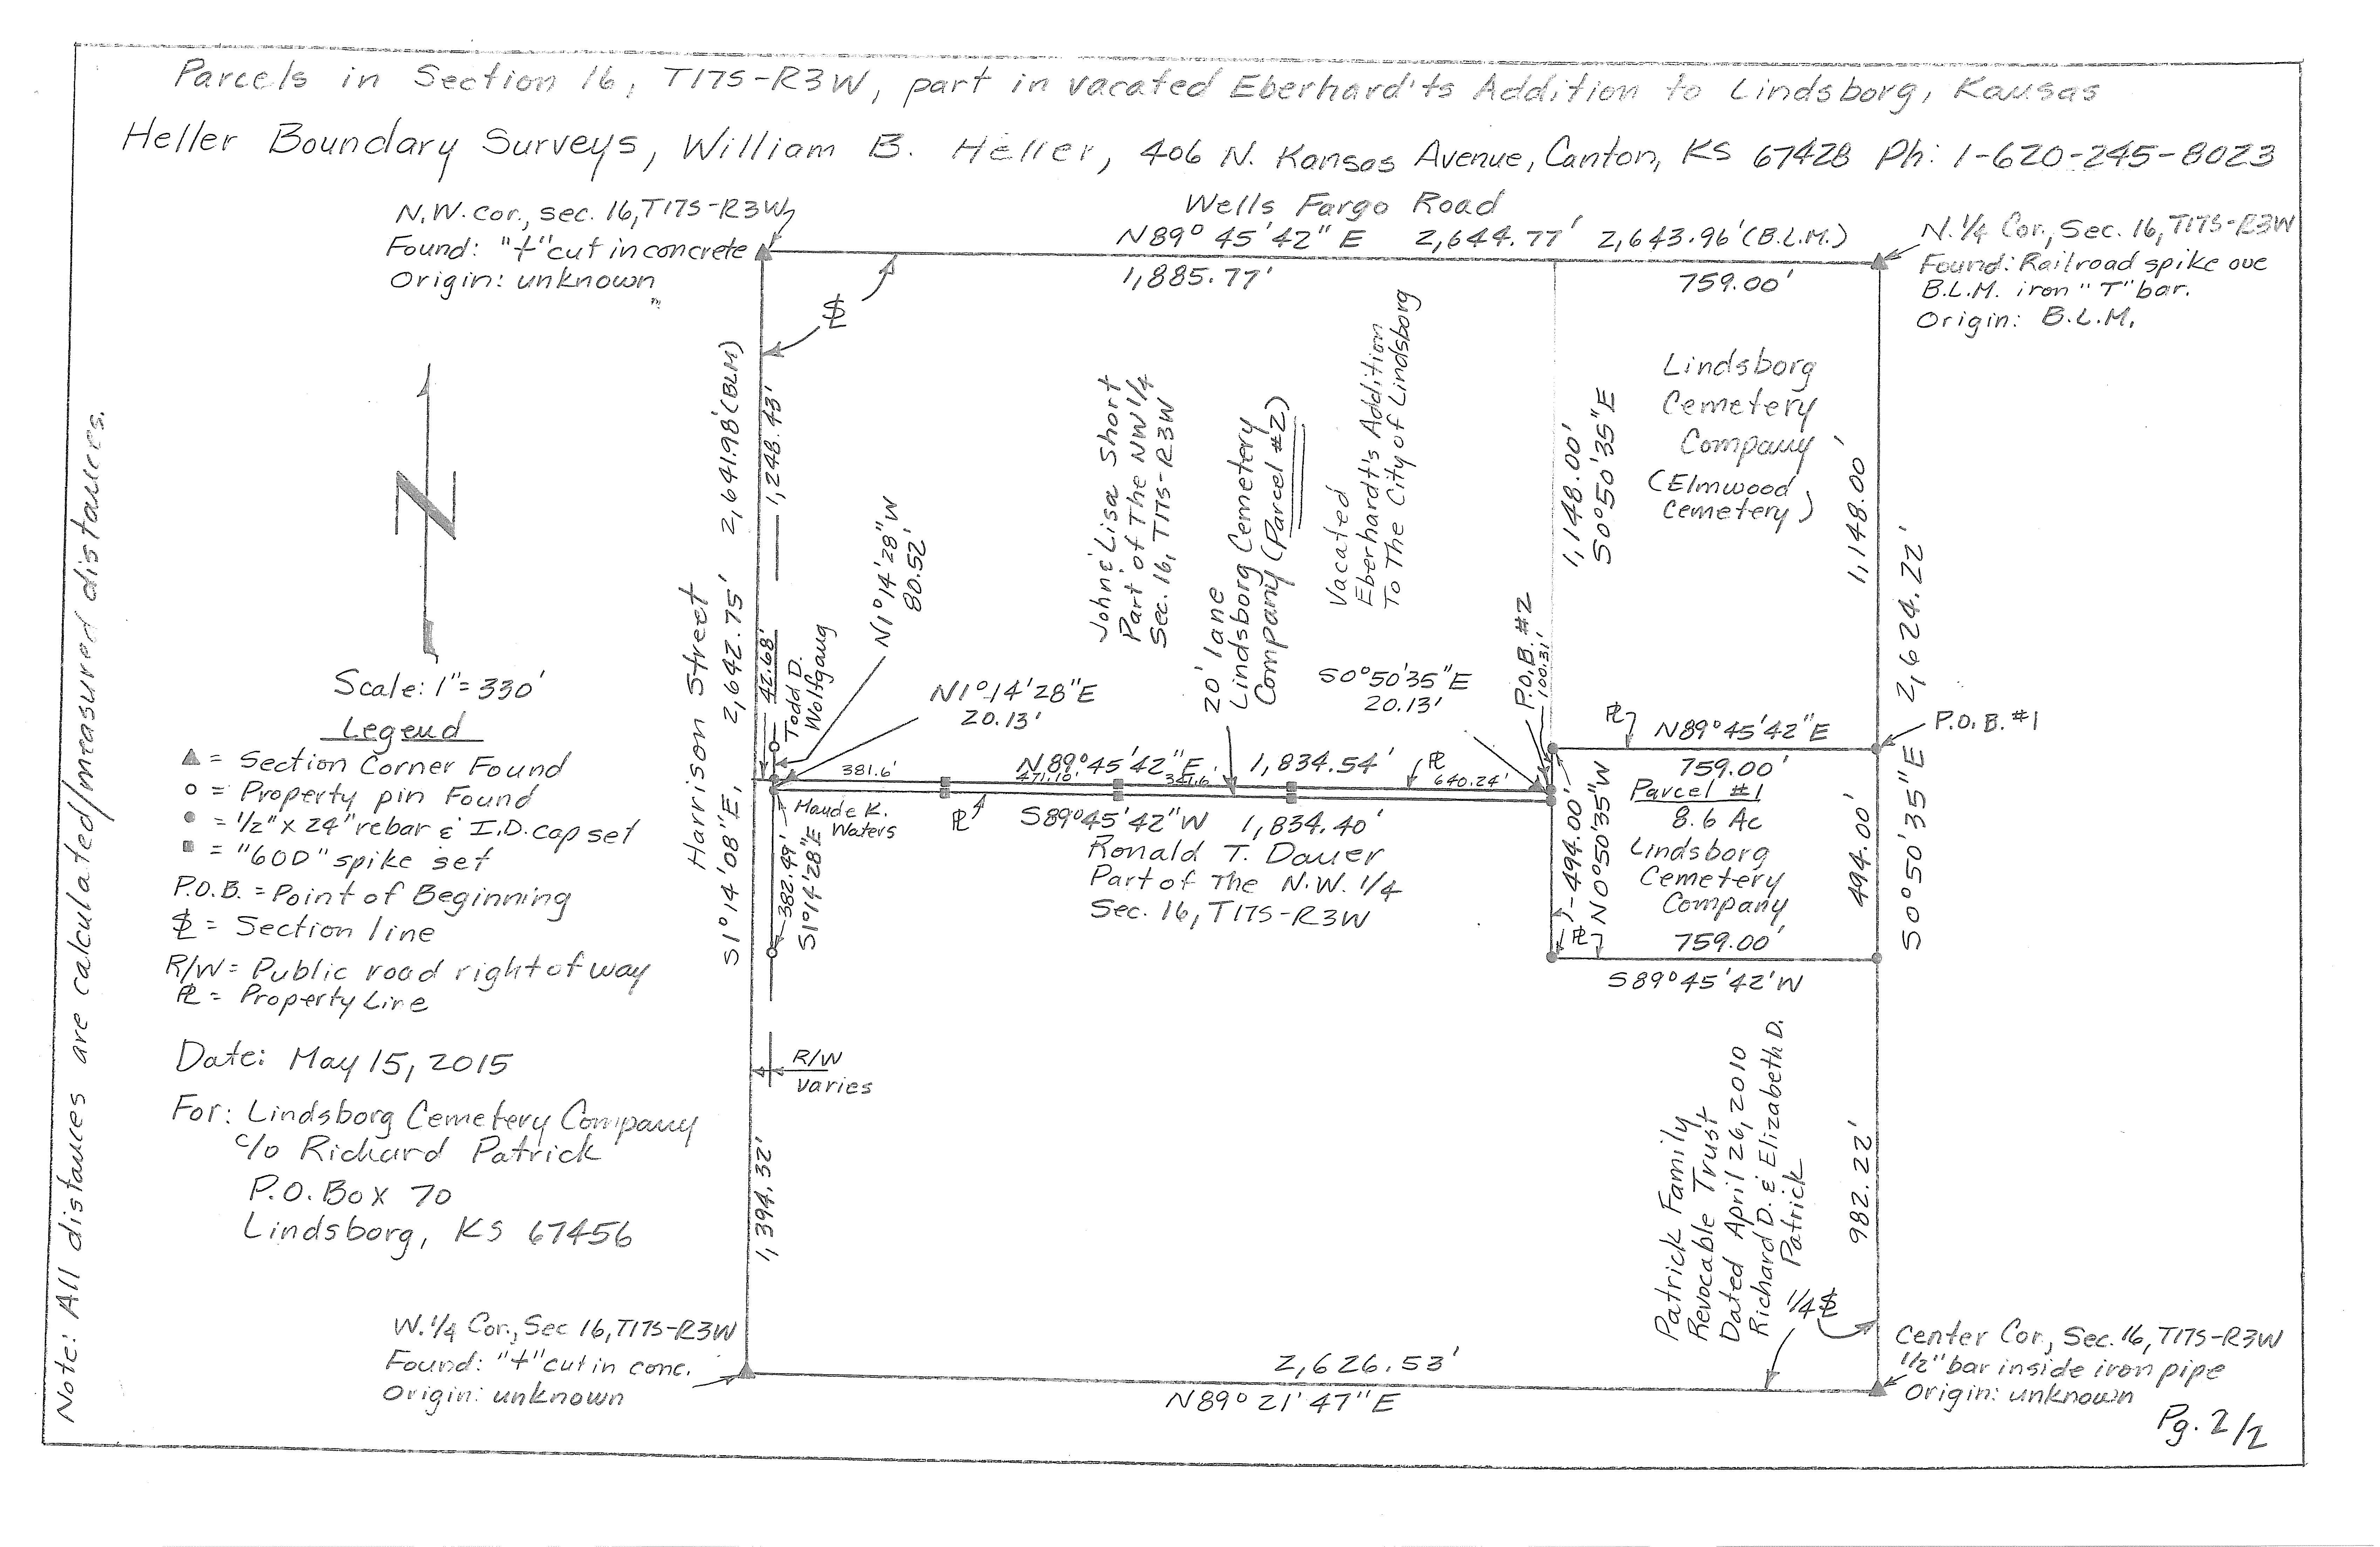 Parcels in Section 16, T17S-R3W, part in vacated Eberhard'ts Addition to Lindsborg, Kansas
Heller Boundary Surveys, William B. Heller, 406 N. Kansas Avenue, Canton, KS 67428 Ph: 1-620-245-8023
N.W. cor., sec. 16, T17S-R3W
Found: "+" cut in concrete
Origin: unknown
Wells Fargo Road
N89° 45' 42" E 2,644.77' 2,643.96' (B.L.M.)
1,885.77'
759.00'
N. 1/4 Cor., Sec. 16, T17S-R3W
Found: Railroad spike ove
B.L.M. iron "T" bar.
Origin: B.L.M.
Note: All distances are calculated/measured distances.
N
Scale: 1" = 330'
Legend
▲ = Section Corner Found
o = Property pin Found
● = 1/2" x 24" rebar & I.D. cap set
■ = "60D" spike set
P.O.B. = Point of Beginning
SL = Section line
R/W = Public road right of way
PL = Property Line
Date: May 15, 2015
For: Lindsborg Cemetery Company
c/o Richard Patrick
P.O. Box 70
Lindsborg, KS 67456
Harrison Street
S1° 14' 08" E, 2,642.75' 2,641.98' (BLM)
SL
1,248.43'
42.68'
Todd D.
Wolfgang
N1° 14' 28" W
80.52'
N1° 14' 28" E
20.13'
John & Lisa Short
Part of The NW 1/4
Sec. 16, T17S-R3W
20' lane
Lindsborg Cemetery
Company (Parcel #2)
Vacated
Eberhardt's Addition
To The City of Lindsborg
S0° 50' 35" E
20.13'
P.O.B. #2
100.31'
1,148.00'
S0° 50' 35" E
Lindsborg
Cemetery
Company
(Elmwood
Cemetery)
1,148.00'
S0° 50' 35" E 2,624.22'
P.O.B. #1
381.6'
N89° 45' 42" E 1,834.54'
471.10'
341.6
PL
640.24'
PL
S89° 45' 42" W 1,834.40'
Maude K.
Waters
382.49'
S1° 14' 28" E
Ronald T. Dauer
Part of The N.W. 1/4
Sec. 16, T17S-R3W
PL
N89° 45' 42" E
759.00'
Parcel #1
8.6 Ac
Lindsborg
Cemetery
Company
759.00'
S89° 45' 42' W
494.00'
N0° 50' 35" W
PL
494.00'
R/W
varies
1,394.32'
Patrick Family
Revocable Trust
Dated April 26, 2010
Richard D. & Elizabeth D.
Patrick
982.22'
1/4 SL
W. 1/4 Cor., Sec 16, T17S-R3W
Found: "+" cut in conc.
Origin: unknown
2,626.53'
N89° 21' 47" E
Center Cor., Sec. 16, T17S-R3W
1/2" bar inside iron pipe
Origin: unknown
Pg. 2/2